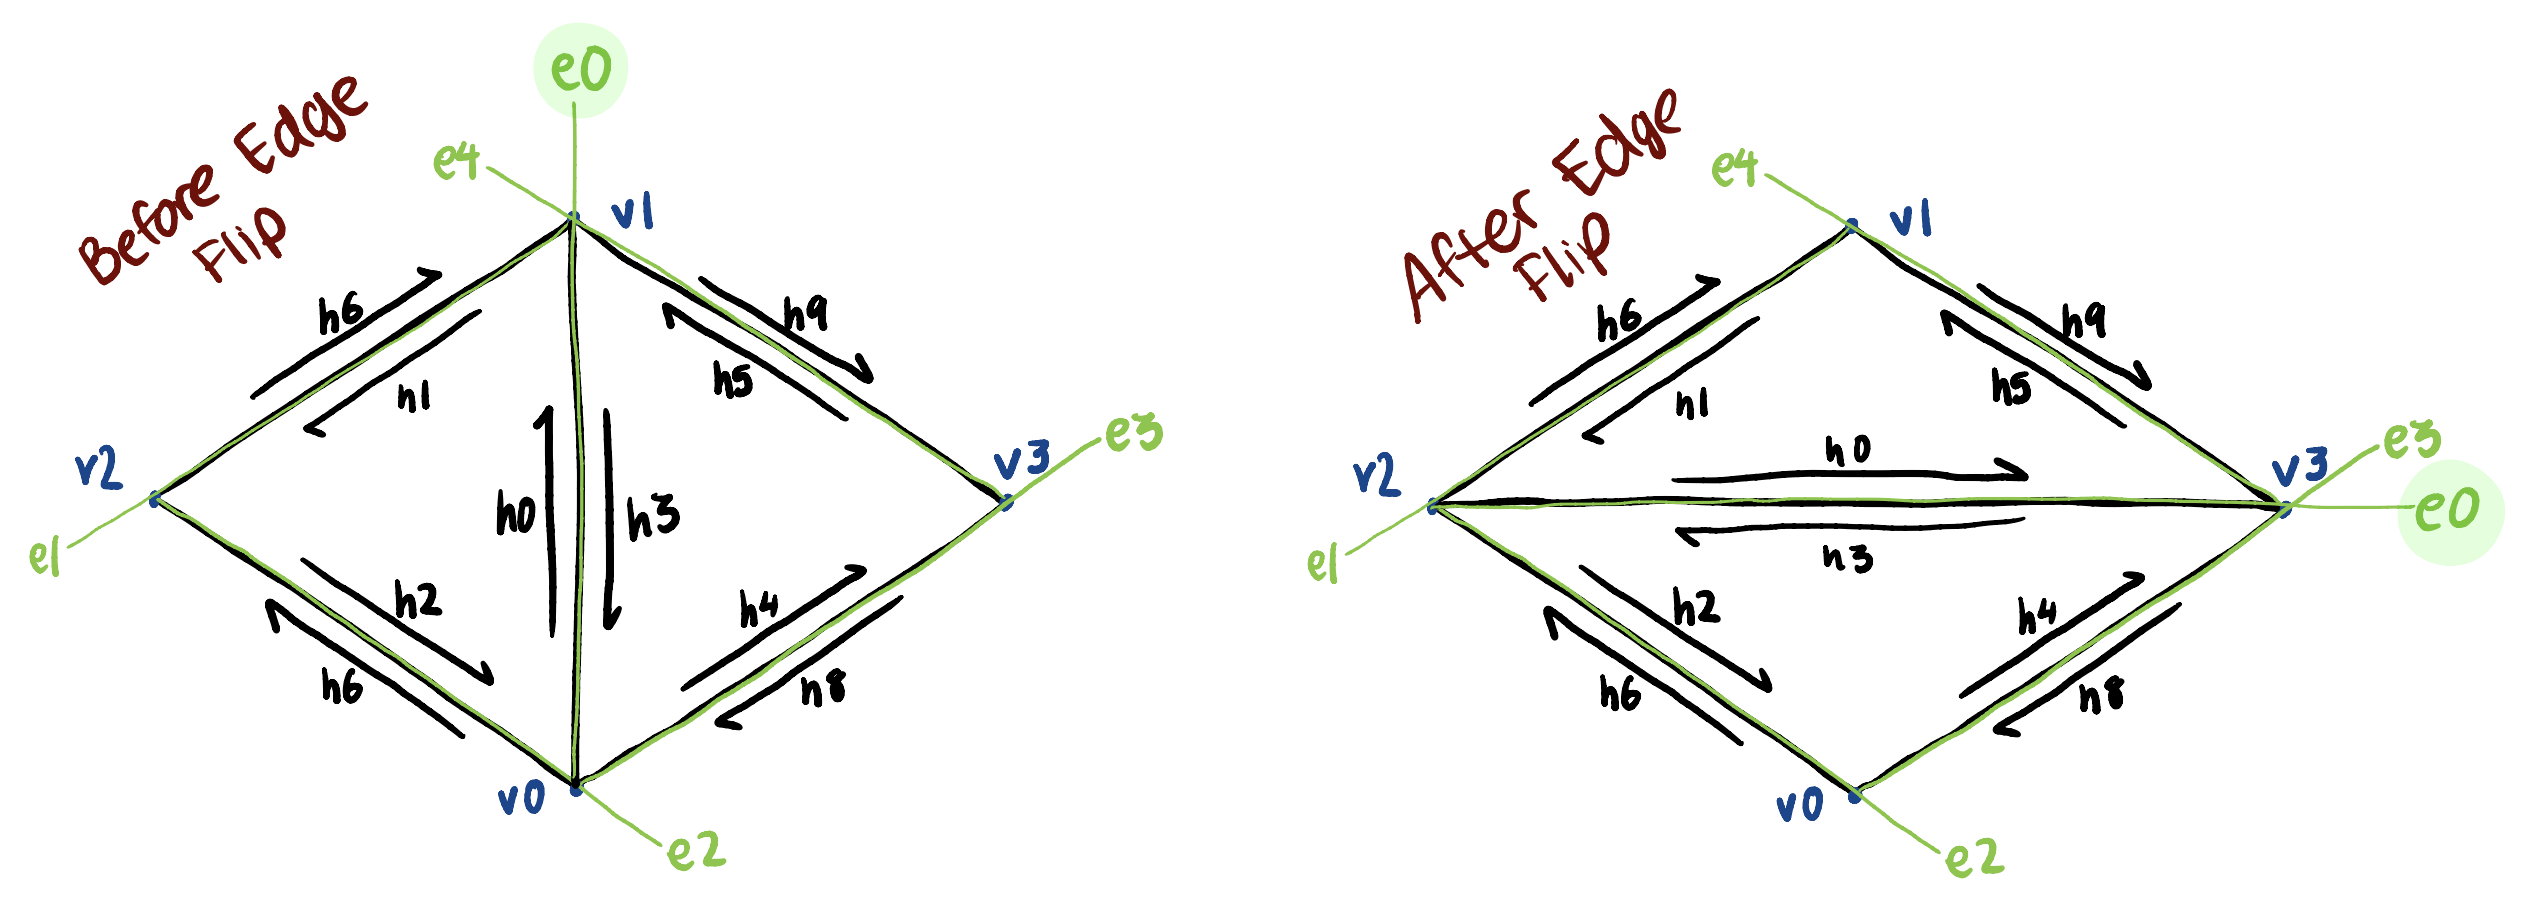 Before Edge
Flip
e0
e4
v1
h6
h9
h1
h5
v2
v3
e3
h0
h3
e1
h2
h4
h6
h8
v0
e2
After Edge
Flip
e4
v1
h6
h9
h1
h5
h0
v2
v3
e3
e0
h3
e1
h2
h4
h6
h8
v0
e2